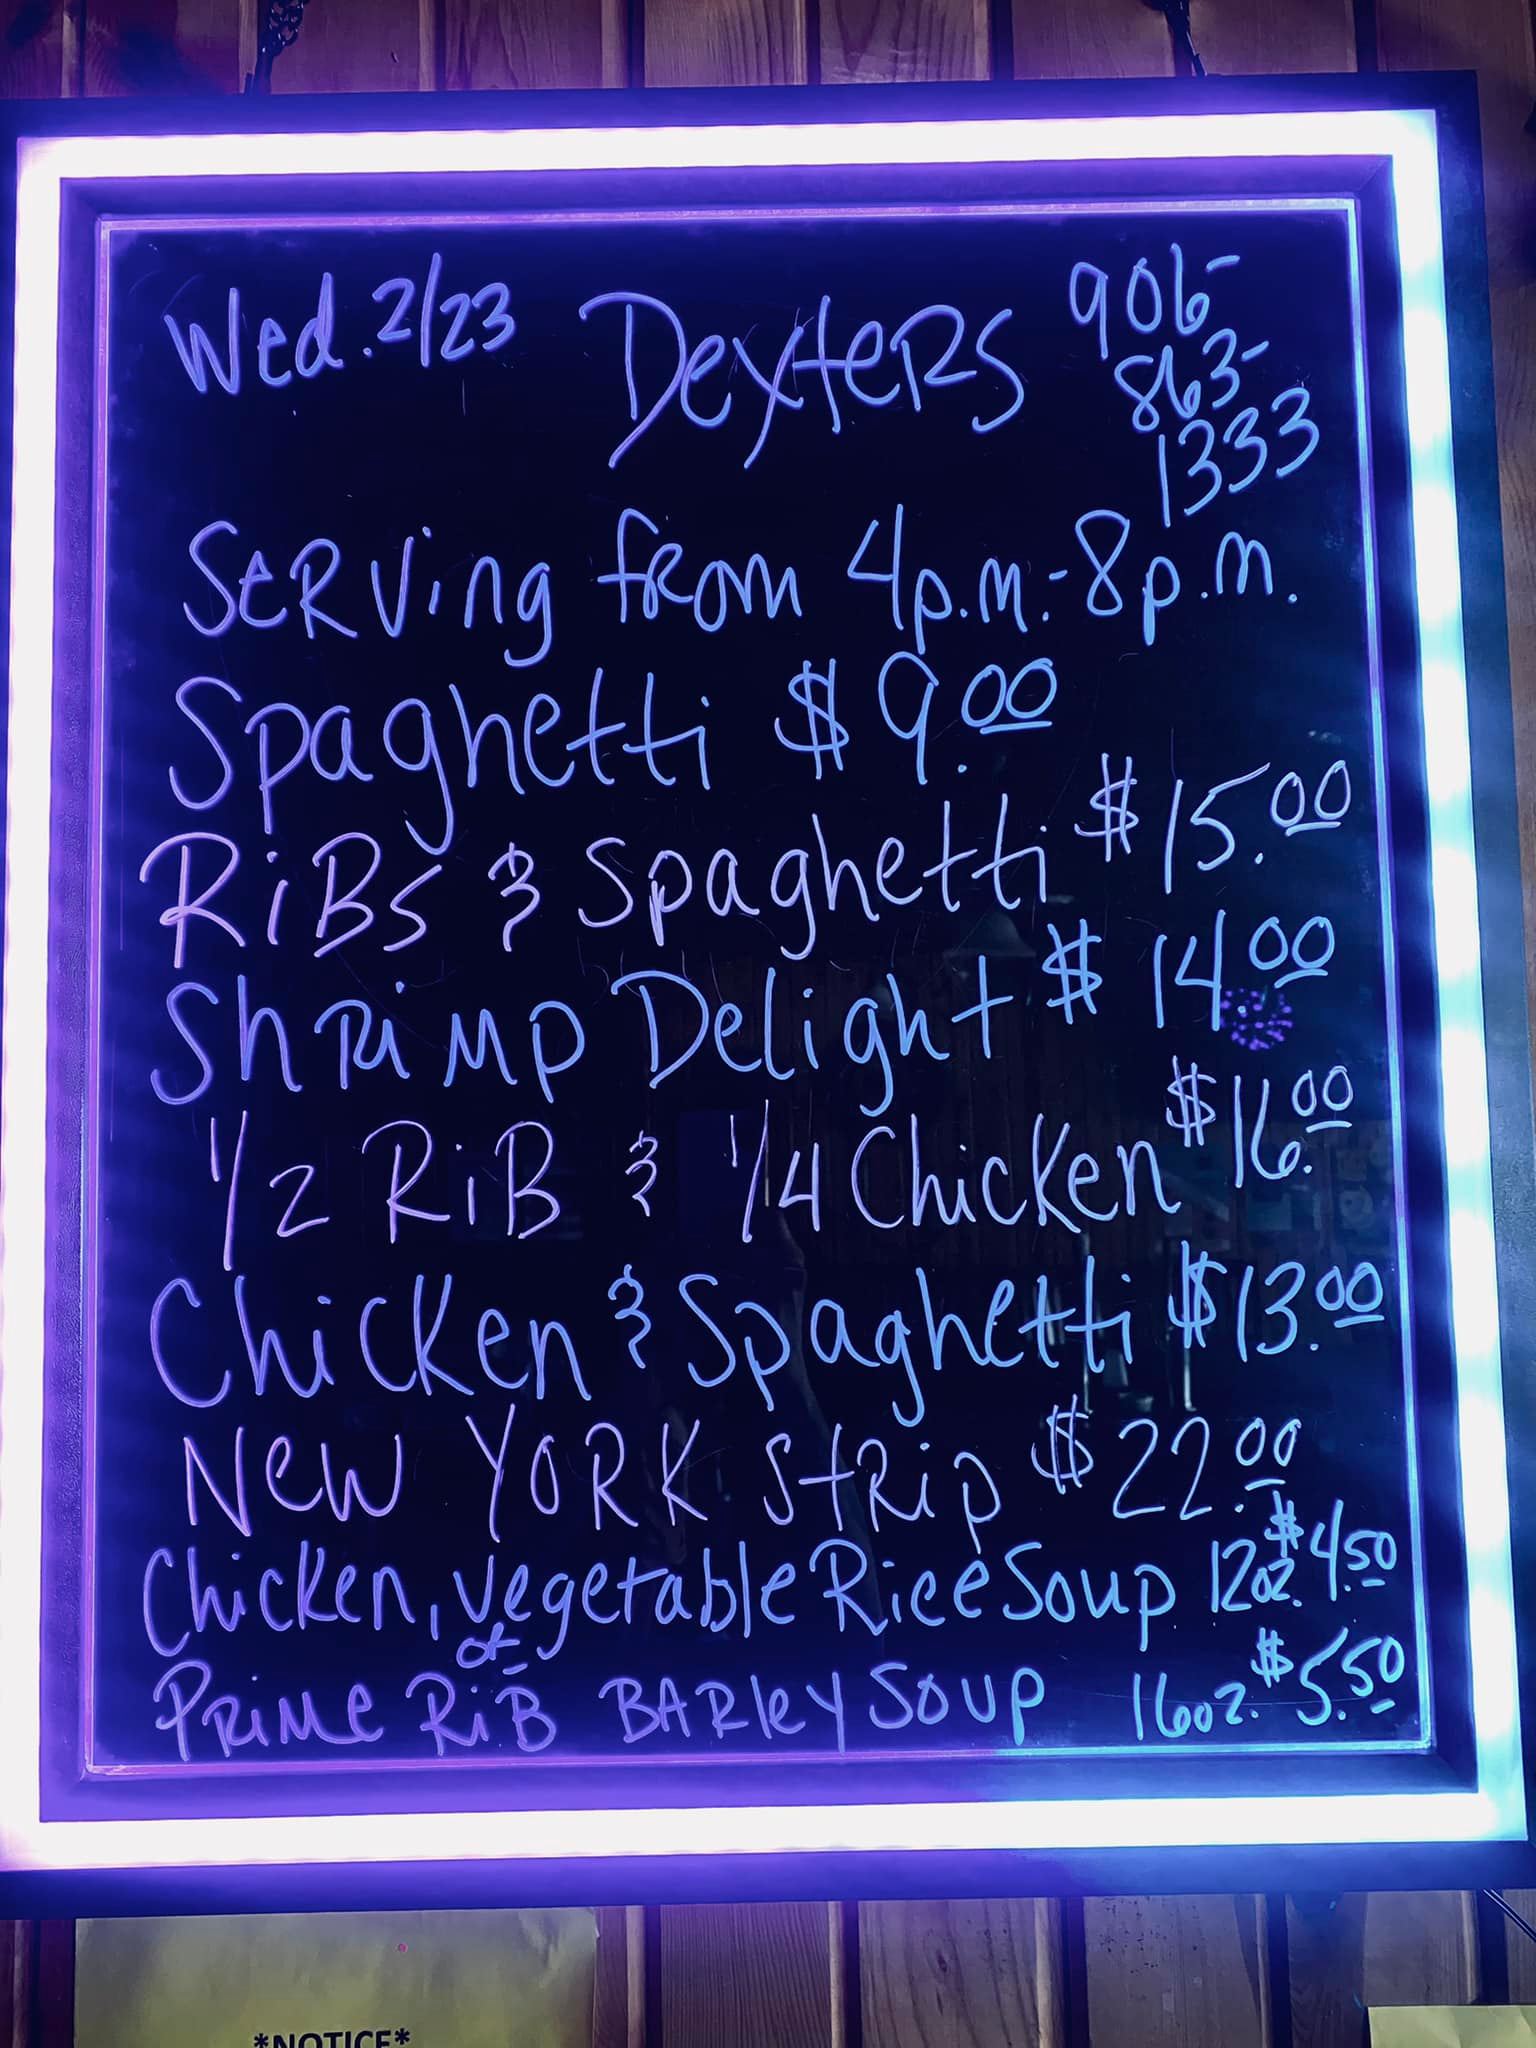 Wed. 2/23 Dexters 906-
863-
1333
Serving from 4p.m.-8p.m.
Spaghetti $9.00
Ribs & Spaghetti $15.00
Shrimp Delight $14.00
1/2 Rib & 1/4 Chicken $16.00
Chicken & Spaghetti $13.00
New York Strip $22.00
Chicken, Vegetable Rice Soup 12oz. $4.50
or
Prime Rib Barley Soup 16oz. $5.50
*NOTICE*